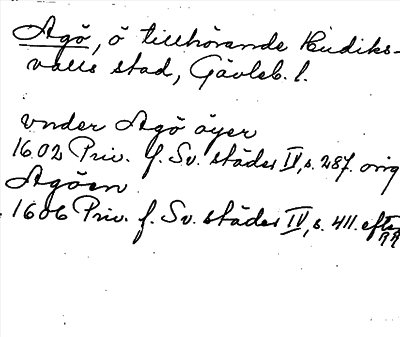 Agö, ö tillhörande Hudiks-
valls stad, Gävleb. l.
vnder Agö öyer
1602 Priv. f. Sv. städer IV, s. 287. orig
Agöen
1606 Priv. f. Sv. städer IV, s. 411. efter